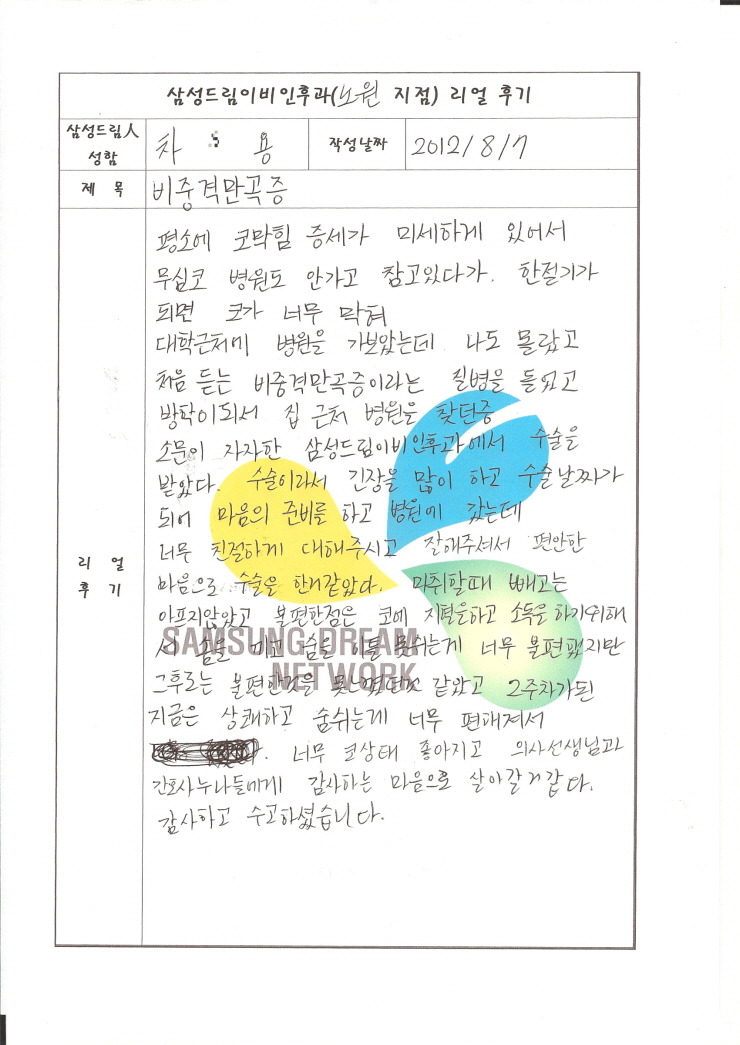 삼성드림이비인후과(노원 지점) 리얼 후기
삼성드림人 성함
차 용
작성날짜
2012/8/7
제 목
비중격만곡증
리 얼 후 기
평소에 코막힘 증세가 미세하게 있어서
무심코 병원도 안가고 참고있다가. 한절기가
되면 코가 너무 막혀
대학근처에 병원을 가보았는데 나도 몰랐고
처음 듣는 비중격만곡증이라는 질병을 들었고
방학이되서 집 근처 병원을 찾던중
소문이 자자한 삼성드림이비인후과에서 수술을
받았다. 수술이라서 긴장을 많이 하고 수술날짜가
되어 마음의 준비를 하고 병원에 갔는데
너무 친절하게 대해주시고 잘해주셔서 편안한
마음으로 수술을 한거같았다. 마취할때 빼고는
아프지않았고 불편한점은 코에 지혈을하고 소독을 하기위해
서 솜을 끼고 숨을 이틀 못쉬는게 너무 불편했지만
그후로는 불편한것을 못느꼈던것 같았고 2주차가된
지금은 상쾌하고 숨쉬는게 너무 편해져서
너무 코상태 좋아지고 의사선생님과
간호사누나들에게 감사하는 마음으로 살아갈거같다.
감사하고 수고하셨습니다.
SAMSUNG DREAM
NETWORK